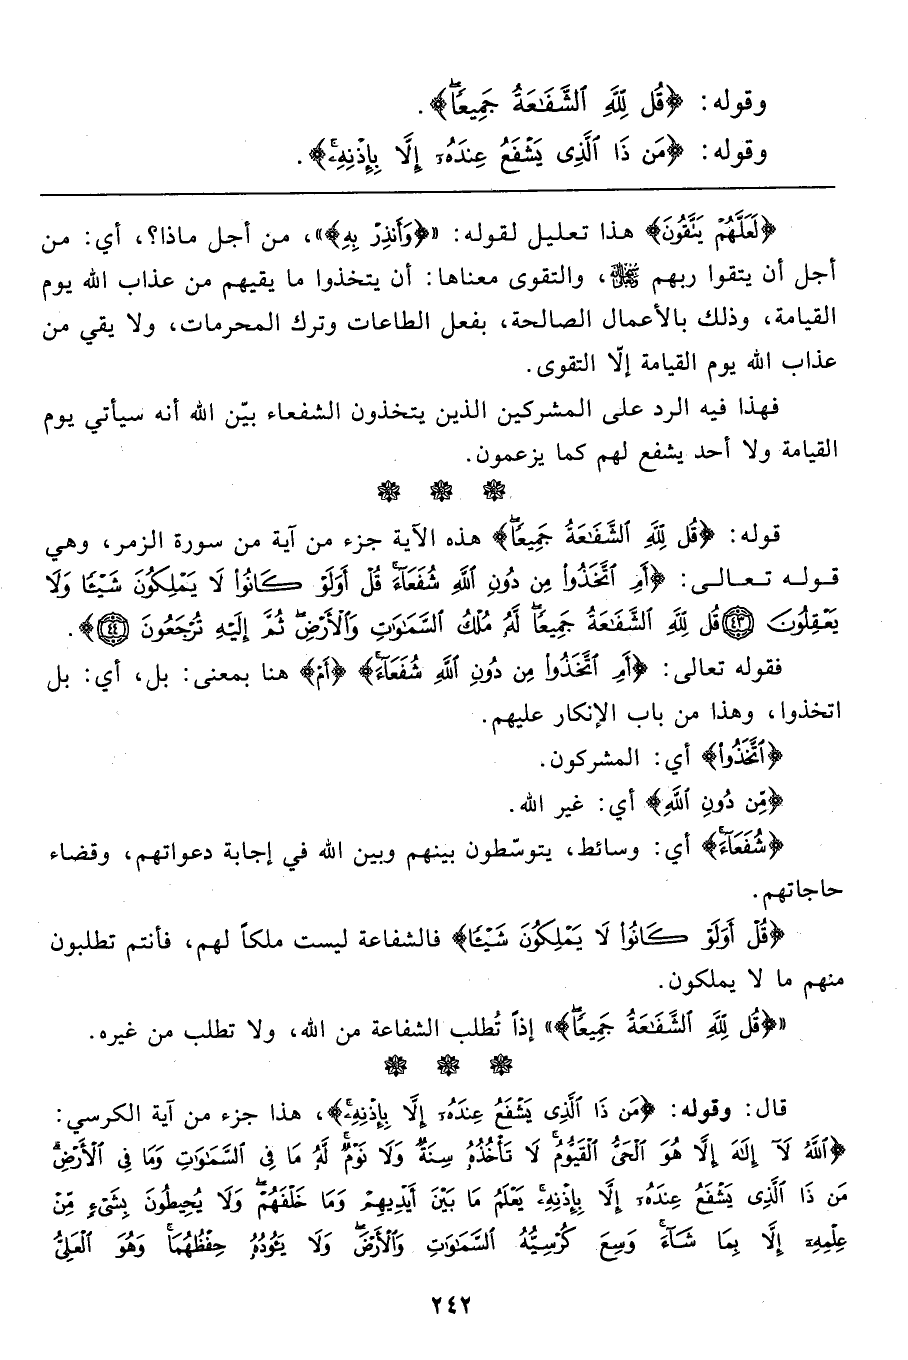 وقوله: ﴿قُل لِّلَّهِ ٱلشَّفَٰعَةُ جَمِيعًاۖ﴾.
وقوله: ﴿مَن ذَا ٱلَّذِى يَشْفَعُ عِندَهُۥٓ إِلَّا بِإِذْنِهِۦۚ﴾.
﴿لَعَلَّهُمْ يَتَّقُونَ﴾ هذا تعليل لقوله: «﴿وَأَنذِرْ بِهِ﴾»، من أجل ماذا؟، أي: من
أجل أن يتقوا ربهم ﷻ، والتقوى معناها: أن يتخذوا ما يقيهم من عذاب الله يوم
القيامة، وذلك بالأعمال الصالحة، بفعل الطاعات وترك المحرمات، ولا يقي من
عذاب الله يوم القيامة إلّا التقوى.
فهذا فيه الرد على المشركين الذين يتخذون الشفعاء بيّن الله أنه سيأتي يوم
القيامة ولا أحد يشفع لهم كما يزعمون.
قوله: ﴿قُل لِّلَّهِ ٱلشَّفَٰعَةُ جَمِيعًاۖ﴾ هذه الآية جزء من آية من سورة الزمر، وهي
قوله تعالى: ﴿أَمِ ٱتَّخَذُوا۟ مِن دُونِ ٱللَّهِ شُفَعَآءَۚ قُلْ أَوَلَوْ كَانُوا۟ لَا يَمْلِكُونَ شَيْـًٔا وَلَا
يَعْقِلُونَ ٤٣ قُل لِّلَّهِ ٱلشَّفَٰعَةُ جَمِيعًاۖ لَّهُۥ مُلْكُ ٱلسَّمَٰوَٰتِ وَٱلْأَرْضِۖ ثُمَّ إِلَيْهِ تُرْجَعُونَ ٤٤﴾.
فقوله تعالى: ﴿أَمِ ٱتَّخَذُوا۟ مِن دُونِ ٱللَّهِ شُفَعَآءَۚ﴾ ﴿أَمْ﴾ هنا بمعنى: بل، أي: بل
اتخذوا، وهذا من باب الإنكار عليهم.
﴿ٱتَّخَذُوا۟﴾ أي: المشركون.
﴿مِّن دُونِ ٱللَّهِ﴾ أي: غير الله.
﴿شُفَعَآءَۚ﴾ أي: وسائط، يتوسّطون بينهم وبين الله في إجابة دعواتهم، وقضاء
حاجاتهم.
﴿قُلْ أَوَلَوْ كَانُوا۟ لَا يَمْلِكُونَ شَيْـًٔا﴾ فالشفاعة ليست ملكاً لهم، فأنتم تطلبون
منهم ما لا يملكون.
«﴿قُل لِّلَّهِ ٱلشَّفَٰعَةُ جَمِيعًاۖ﴾» إذاً تُطلب الشفاعة من الله، ولا تطلب من غيره.
قال: وقوله: ﴿مَن ذَا ٱلَّذِى يَشْفَعُ عِندَهُۥٓ إِلَّا بِإِذْنِهِۦۚ﴾، هذا جزء من آية الكرسي:
﴿ٱللَّهُ لَآ إِلَٰهَ إِلَّا هُوَ ٱلْحَىُّ ٱلْقَيُّومُۚ لَا تَأْخُذُهُۥ سِنَةٌ وَلَا نَوْمٌۚ لَّهُۥ مَا فِى ٱلسَّمَٰوَٰتِ وَمَا فِى ٱلْأَرْضِۗ
مَن ذَا ٱلَّذِى يَشْفَعُ عِندَهُۥٓ إِلَّا بِإِذْنِهِۦۚ يَعْلَمُ مَا بَيْنَ أَيْدِيهِمْ وَمَا خَلْفَهُمْۖ وَلَا يُحِيطُونَ بِشَىْءٍ مِّنْ
عِلْمِهِۦٓ إِلَّا بِمَا شَآءَۚ وَسِعَ كُرْسِيُّهُ ٱلسَّمَٰوَٰتِ وَٱلْأَرْضَۖ وَلَا يَـُٔودُهُۥ حِفْظُهُمَاۚ وَهُوَ ٱلْعَلِىُّ
٢٤٢